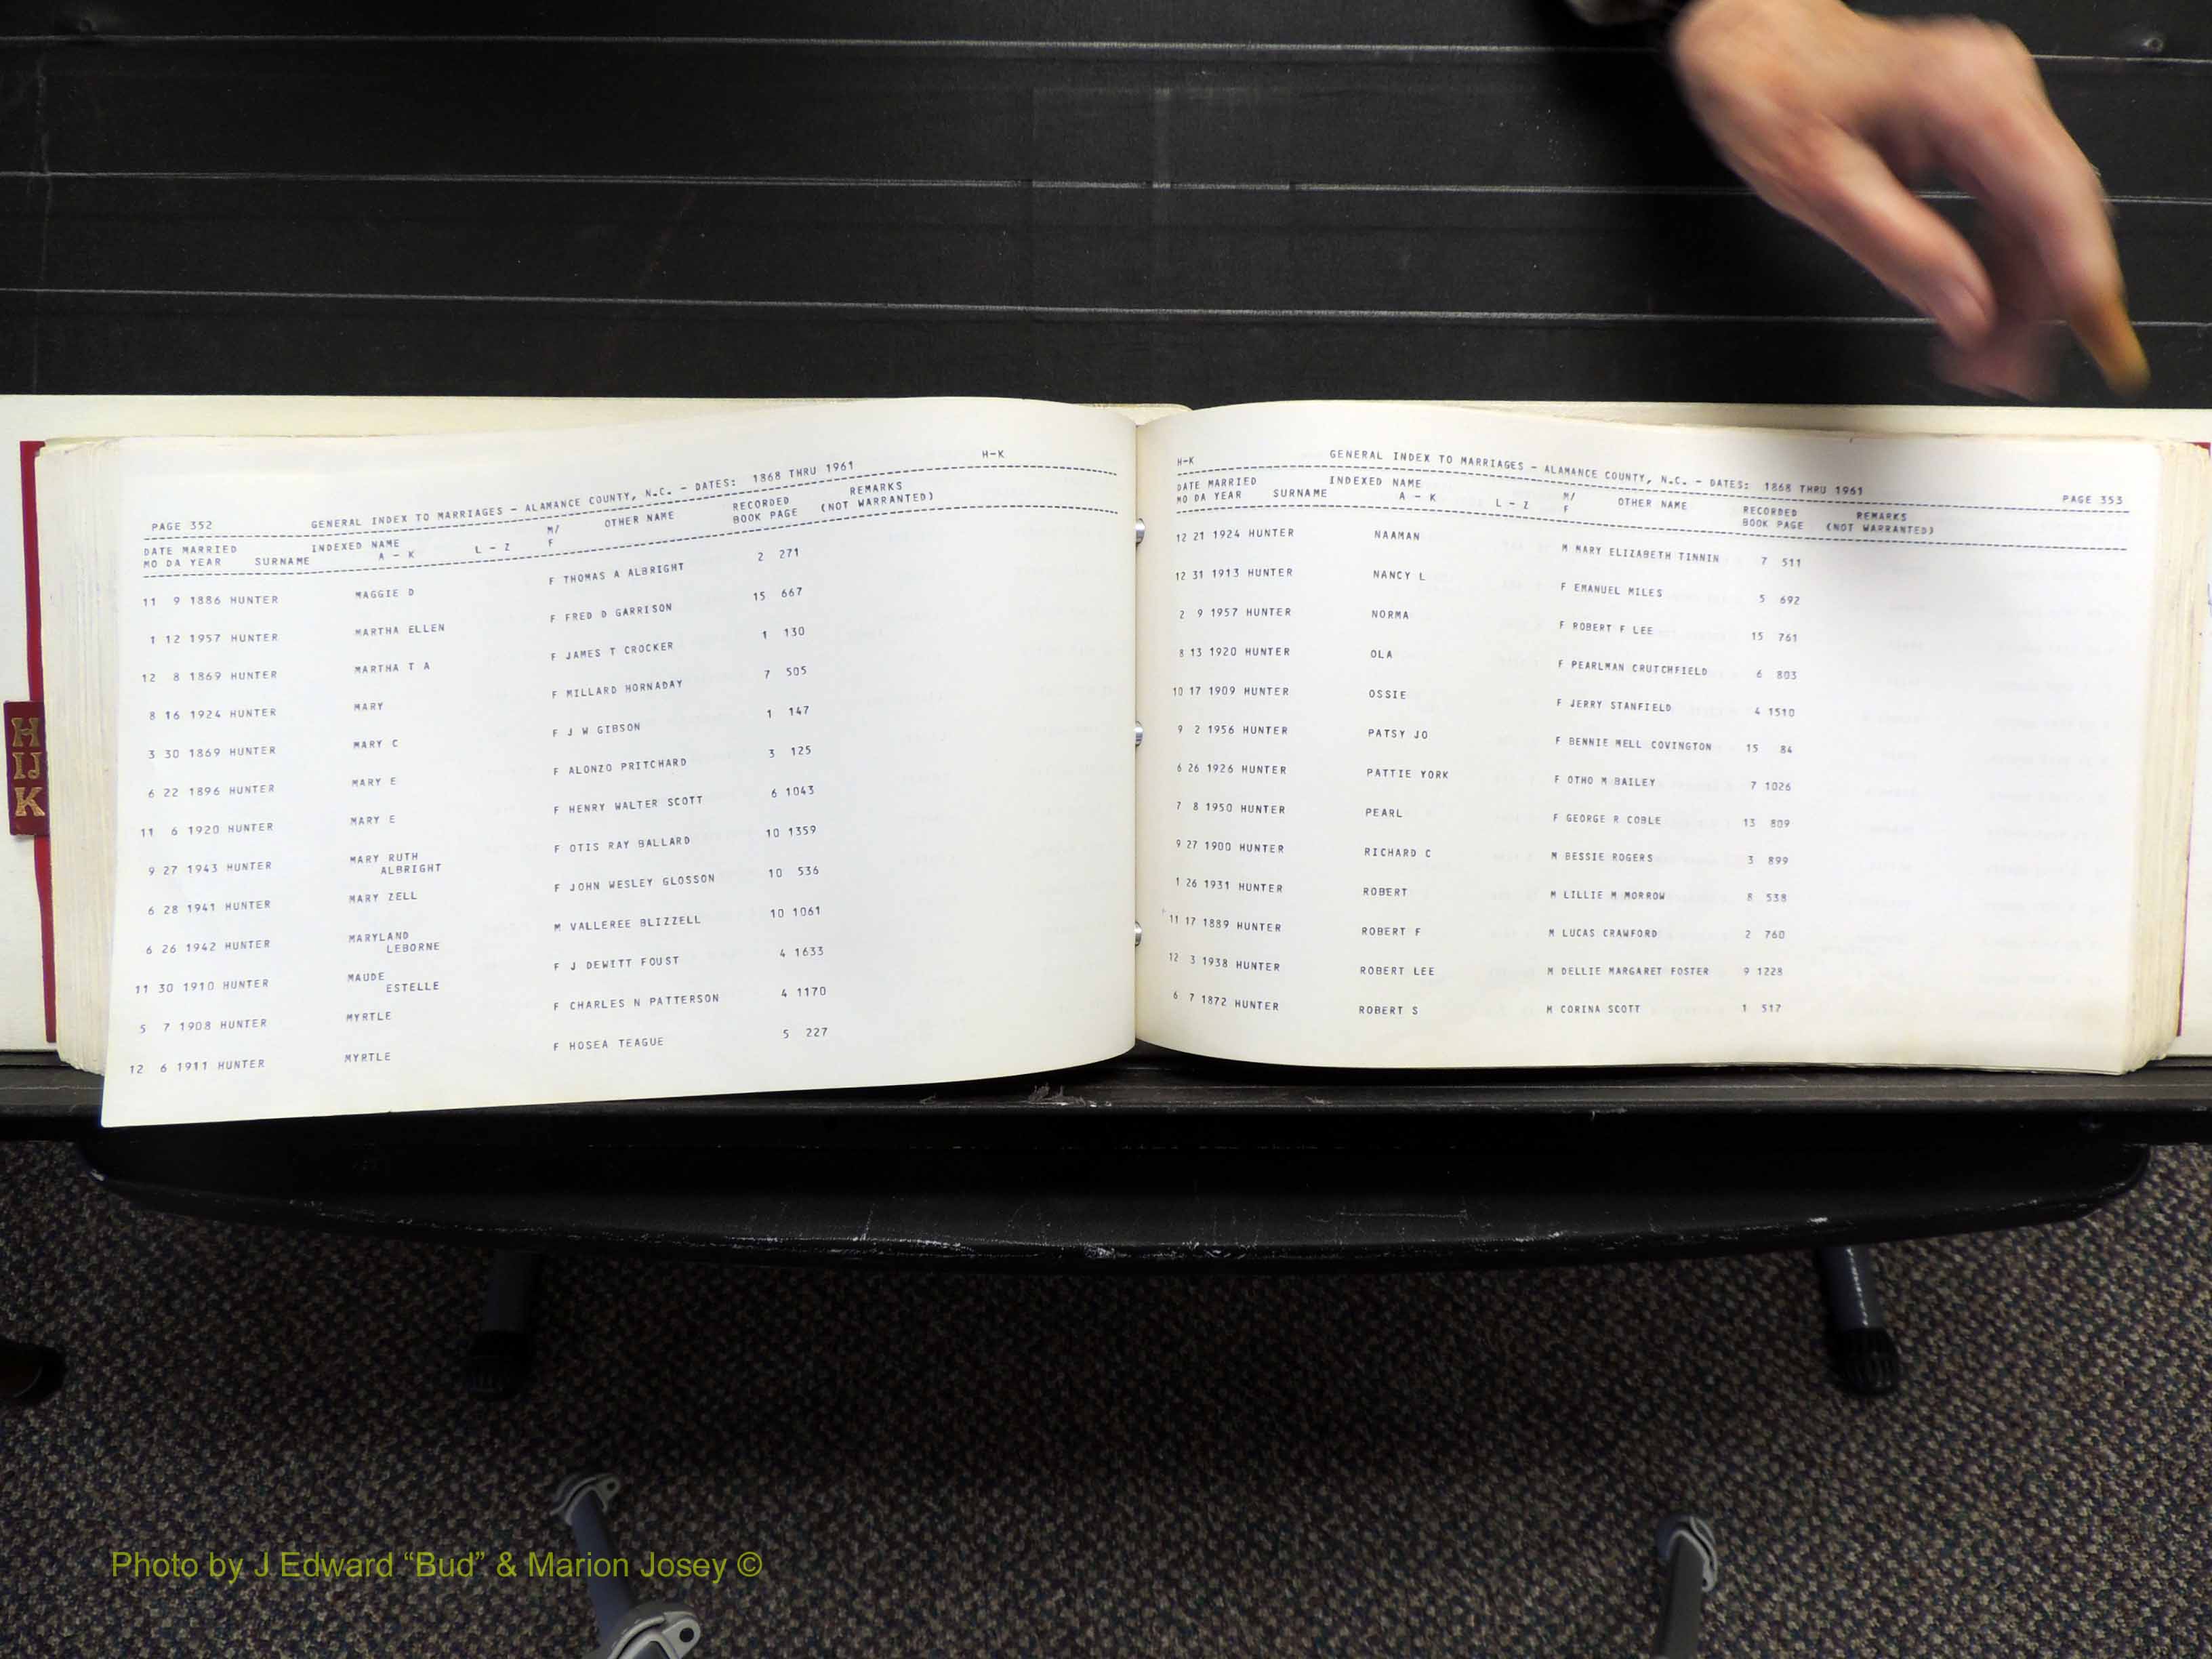 H-K
PAGE 352 GENERAL INDEX TO MARRIAGES - ALAMANCE COUNTY, N.C. - DATES: 1868 THRU 1961
DATE MARRIED INDEXED NAME M/ OTHER NAME RECORDED REMARKS
MO DA YEAR SURNAME A - K L - Z F BOOK PAGE (NOT WARRANTED)
11 9 1886 HUNTER MAGGIE D F THOMAS A ALBRIGHT 2 271
1 12 1957 HUNTER MARTHA ELLEN F FRED D GARRISON 15 667
12 8 1869 HUNTER MARTHA T A F JAMES T CROCKER 1 130
8 16 1924 HUNTER MARY F MILLARD HORNADAY 7 505
3 30 1869 HUNTER MARY C F J W GIBSON 1 147
6 22 1896 HUNTER MARY E F ALONZO PRITCHARD 3 125
11 6 1920 HUNTER MARY E F HENRY WALTER SCOTT 6 1043
9 27 1943 HUNTER MARY RUTH F OTIS RAY BALLARD 10 1359
ALBRIGHT
6 28 1941 HUNTER MARY ZELL F JOHN WESLEY GLOSSON 10 536
6 26 1942 HUNTER MARYLAND M VALLEREE BLIZZELL 10 1061
LEBORNE
11 30 1910 HUNTER MAUDE F J DEWITT FOUST 4 1633
ESTELLE
5 7 1908 HUNTER MYRTLE F CHARLES N PATTERSON 4 1170
12 6 1911 HUNTER MYRTLE F HOSEA TEAGUE 5 227
H
IJ
K
H-K GENERAL INDEX TO MARRIAGES - ALAMANCE COUNTY, N.C. - DATES: 1868 THRU 1961 PAGE 353
DATE MARRIED INDEXED NAME M/ OTHER NAME RECORDED REMARKS
MO DA YEAR SURNAME A - K L - Z F BOOK PAGE (NOT WARRANTED)
12 21 1924 HUNTER NAAMAN M MARY ELIZABETH TINNIN 7 511
12 31 1913 HUNTER NANCY L F EMANUEL MILES 5 692
2 9 1957 HUNTER NORMA F ROBERT F LEE 15 761
8 13 1920 HUNTER OLA F PEARLMAN CRUTCHFIELD 6 803
10 17 1909 HUNTER OSSIE F JERRY STANFIELD 4 1510
9 2 1956 HUNTER PATSY JO F BENNIE MELL COVINGTON 15 84
6 26 1926 HUNTER PATTIE YORK F OTHO M BAILEY 7 1026
7 8 1950 HUNTER PEARL F GEORGE R COBLE 13 809
9 27 1900 HUNTER RICHARD C M BESSIE ROGERS 3 899
1 26 1931 HUNTER ROBERT M LILLIE M MORROW 8 538
11 17 1889 HUNTER ROBERT F M LUCAS CRAWFORD 2 760
12 3 1938 HUNTER ROBERT LEE M DELLIE MARGARET FOSTER 9 1228
6 7 1872 HUNTER ROBERT S M CORINA SCOTT 1 517
Photo by J Edward “Bud” & Marion Josey ©